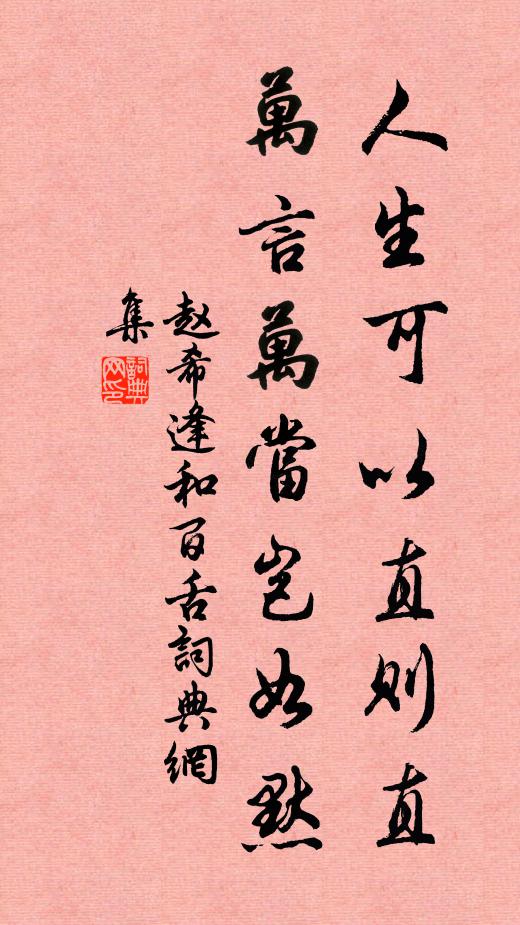 人生可以直則直
萬言萬當豈如默
赵希逢和百舌詞典網
集
詞典
网印